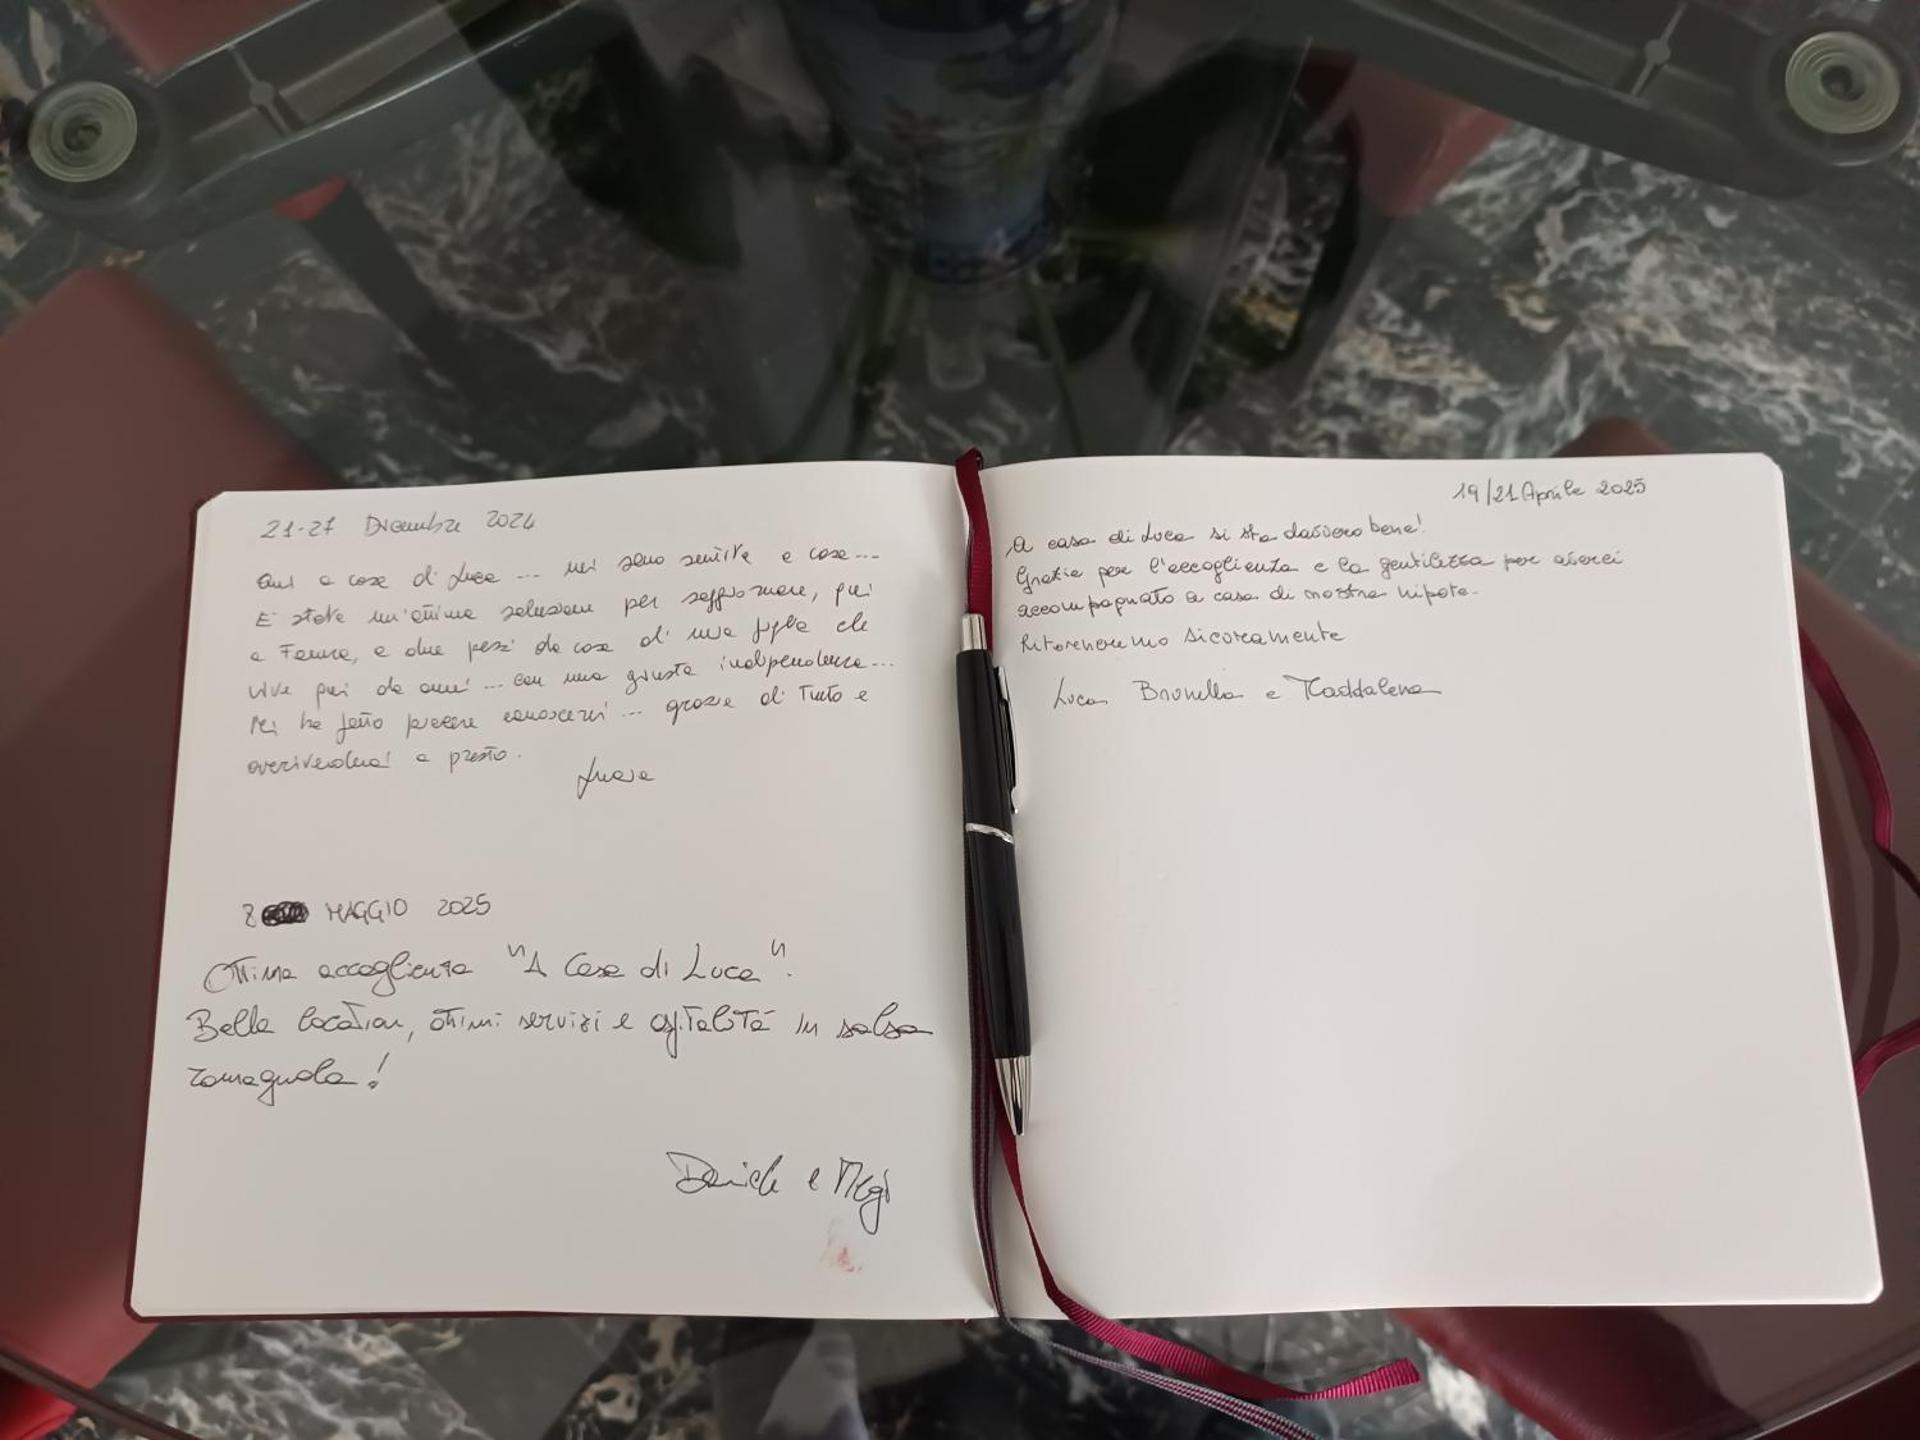 21-27 Dicembre 2024
Qui a casa di Luca ... mi sono sentita a casa ...
E' stata un'ottima soluzione per soggiornare, qui
a Faenza, a due passi da casa di mia figlia che
vive qui da anni ... con una giusta indipendenza ...
Mi ha fatto piacere conoscervi ... grazie di tutto e
arrivederci a presto.
8 MAGGIO 2025
Ottima accoglienza "A Casa di Luca".
Bella location, ottimi servizi e ospitalità in salsa
romagnola!
Daniele e Megi
19/21 Aprile 2025
A casa di Luca si sta davvero bene!
Grazie per l'accoglienza e la gentilezza per averci
accompagnato a casa di nostra nipote.
Ritorneremo sicuramente
Luca Brunella e Maddalena